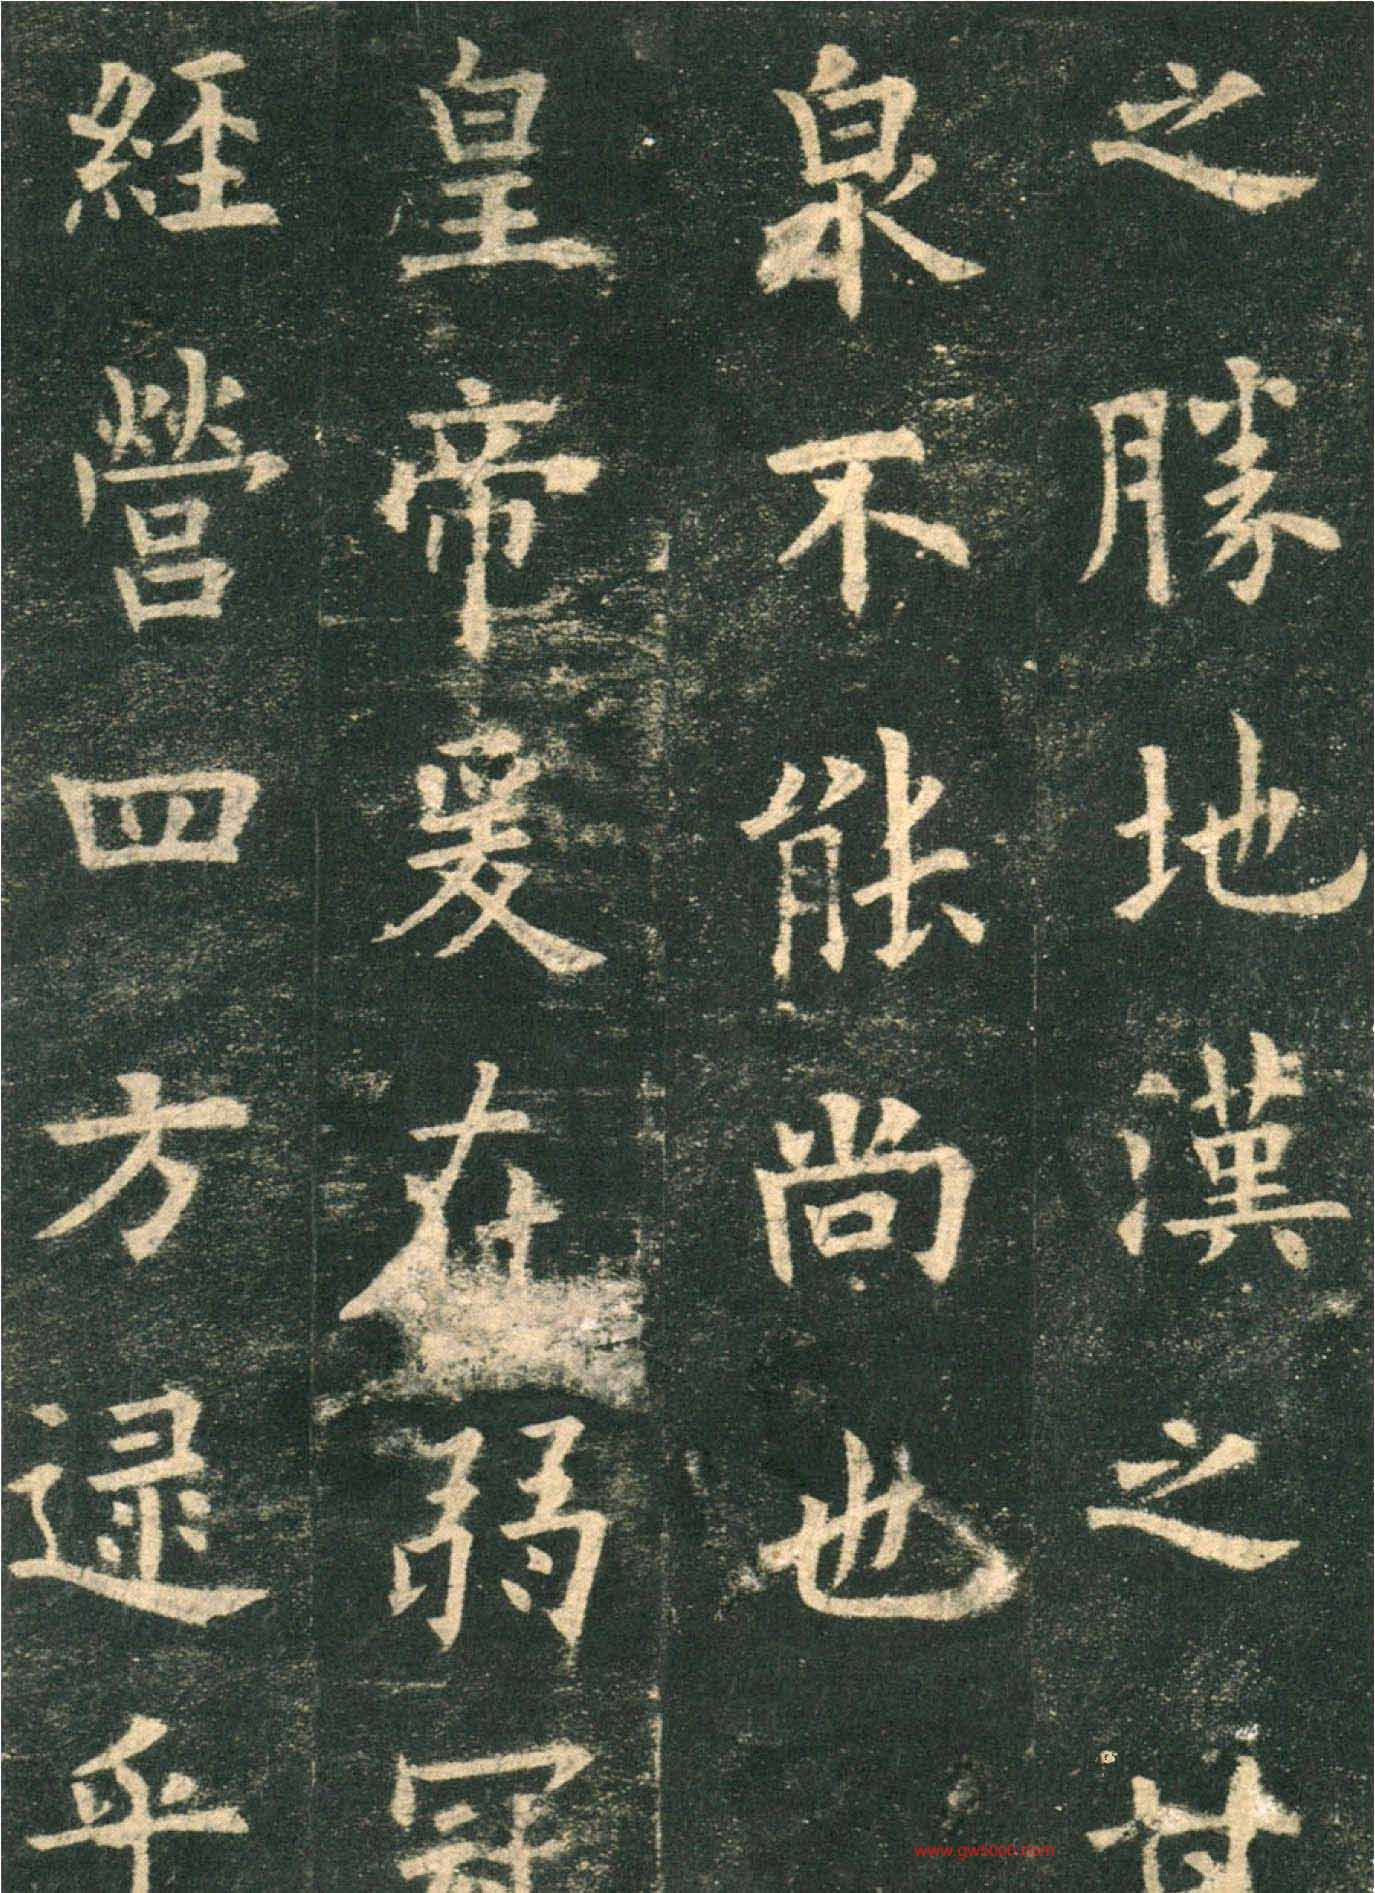 之勝地漢之甘
泉不能尚也
皇帝爰在弱冠
經營四方逯乎
www.gw5000.com